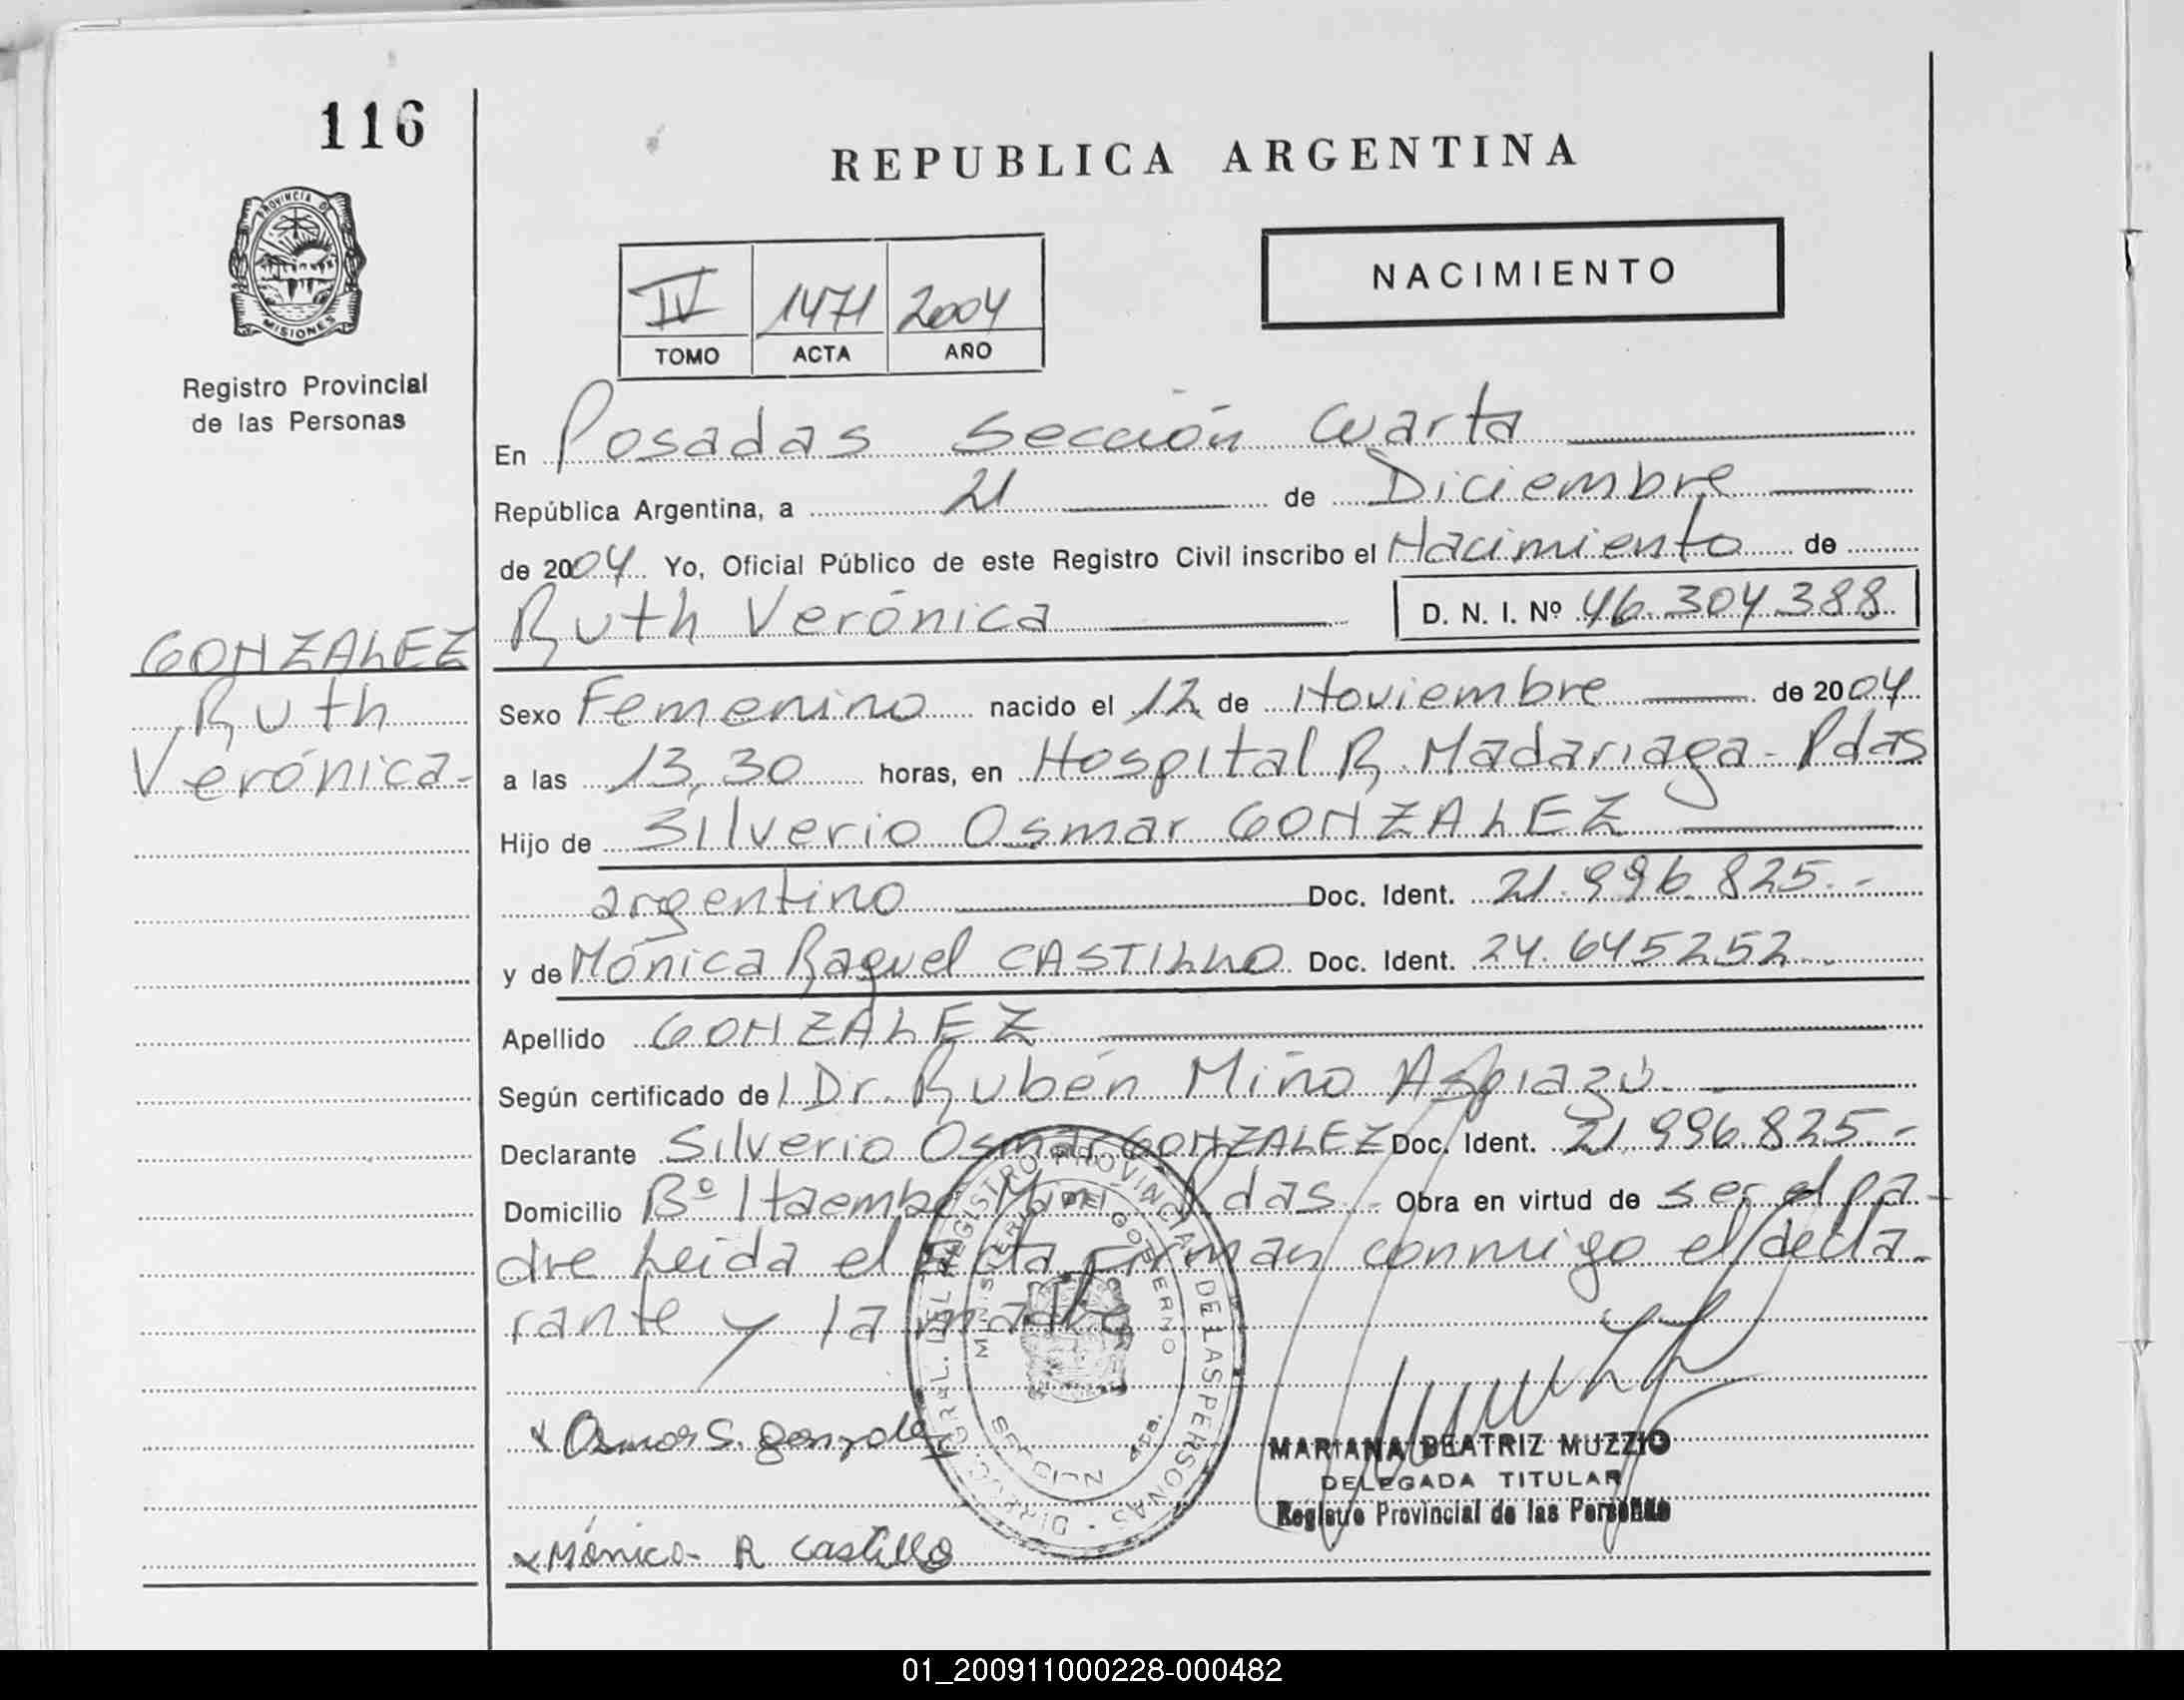 116
REPUBLICA ARGENTINA
PROVINCIA D
MISIONES
Registro Provincial
de las Personas
NACIMIENTO
IV 1471 2004
TOMO ACTA AÑO
En Posadas Sección Cuarta
República Argentina, a 21 de Diciembre
de 2004 Yo, Oficial Público de este Registro Civil inscribo el Nacimiento de
Ruth Verónica D. N. I. Nº 46.304.388
GONZALEZ
Ruth
Verónica-
Sexo Femenino nacido el 12 de Noviembre de 2004
a las 13,30 horas, en Hospital R. Madariaga - Pdas
Hijo de Silverio Osmar GONZALEZ
argentino Doc. Ident. 21.996.825.-
y de Mónica Raquel CASTILLO Doc. Ident. 24.645252..
Apellido GONZALEZ
Según certificado del Dr. Rubén Miño Aspiazú
Declarante Silverio Osmar GONZALEZ Doc. Ident. 21.996.825.-
Domicilio Bº Itaembé Miní Pdas.- Obra en virtud de ser el pa-
dre Leida el Acta firman conmigo el decla-
rante y la madre
DIRECC. GRAL. DEL REGISTRO PROVINCIAL DE LAS PERSONAS
MINISTERIO DE GOBIERNO
Osmar S. gonzalez
MARIANA BEATRIZ MUZZIO
DELEGADA TITULAR
Registro Provincial de las Personas
Mónica R castillo
01_200911000228-000482